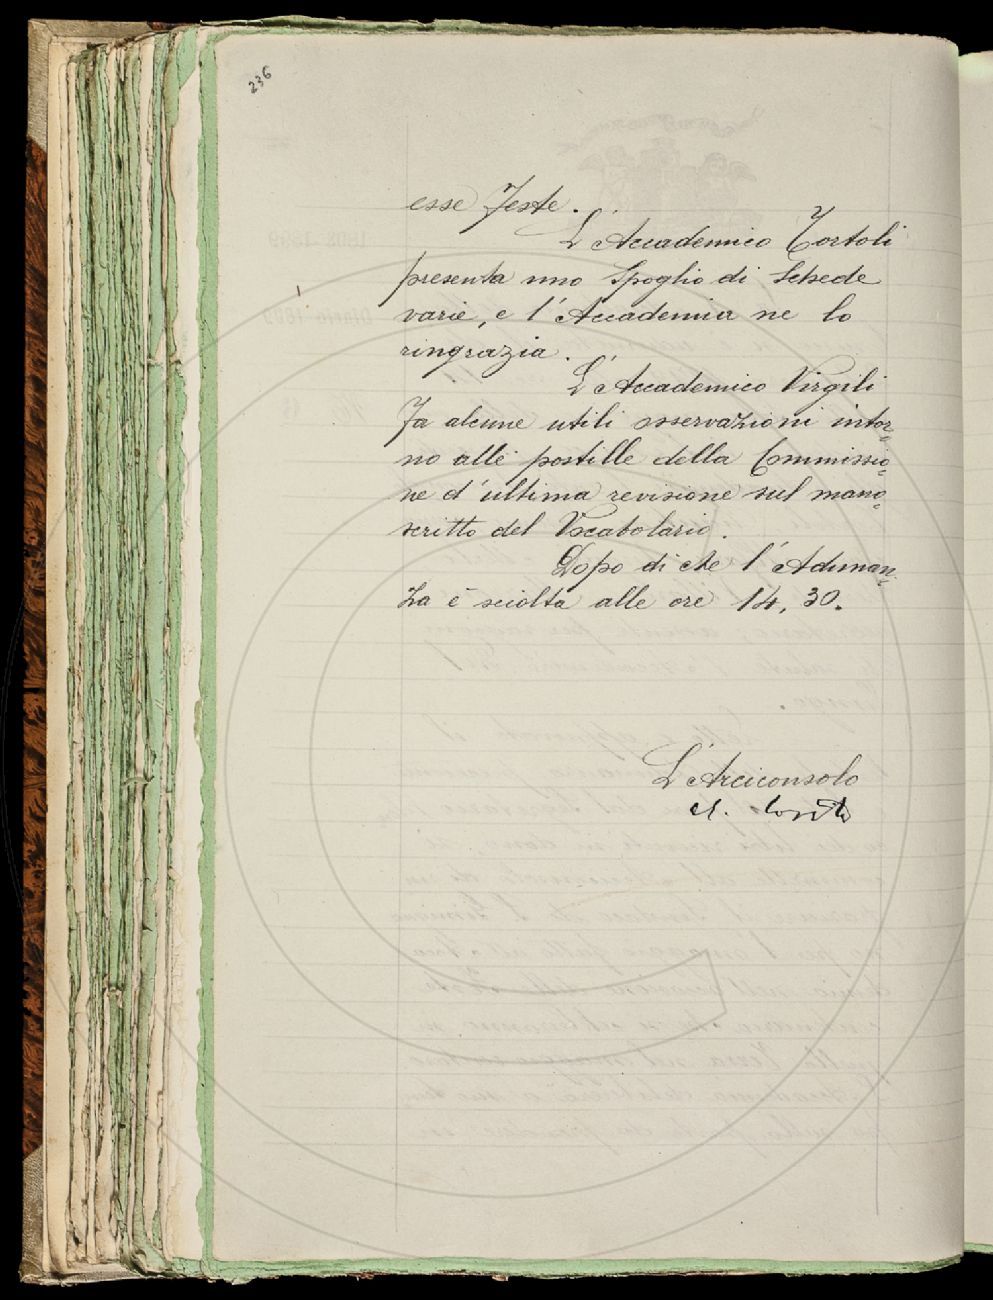 236
esse Feste.
L'Accademico Tortoli
presenta uno Spoglio di Schede
varie, e l'Accademia ne lo
ringrazia.
L'Accademico Virgili
fa alcune utili osservazioni intor=
no alle postille della Commissio=
ne d'ultima revisione sul mano=
scritto del Vocabolario.
Dopo di che l'Adunan=
za è sciolta alle ore 14,30.
L'Arciconsolo
A. Conti